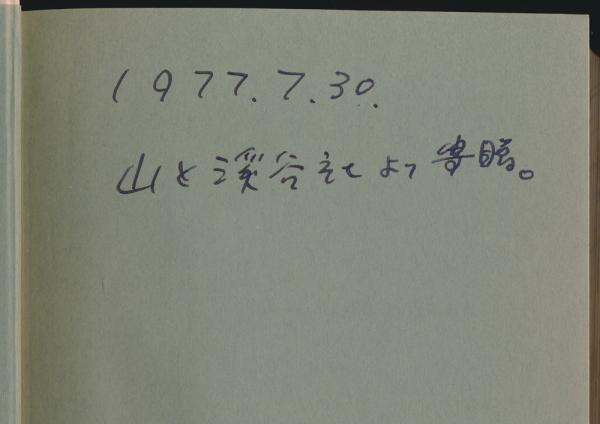 1977.7.30.
山と溪谷社より寄贈。